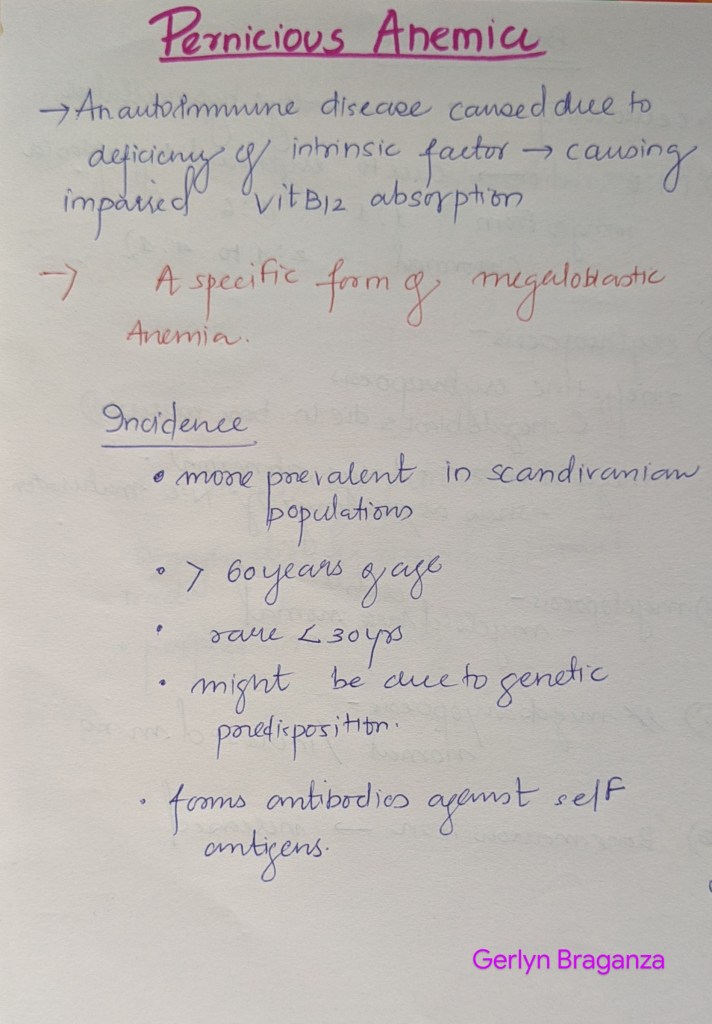 Pernicious Anemia
→ An autoimmune disease caused due to
deficiency of intrinsic factor → causing
impaired VitB12 absorption
→ A specific form of megaloblastic
Anemia.
Incidence
• more prevalent in scandivanian
populations
• > 60 years of age
• rare < 30 yrs
• might be due to genetic
predisposition.
• forms antibodies against self
antigens.
Gerlyn Braganza